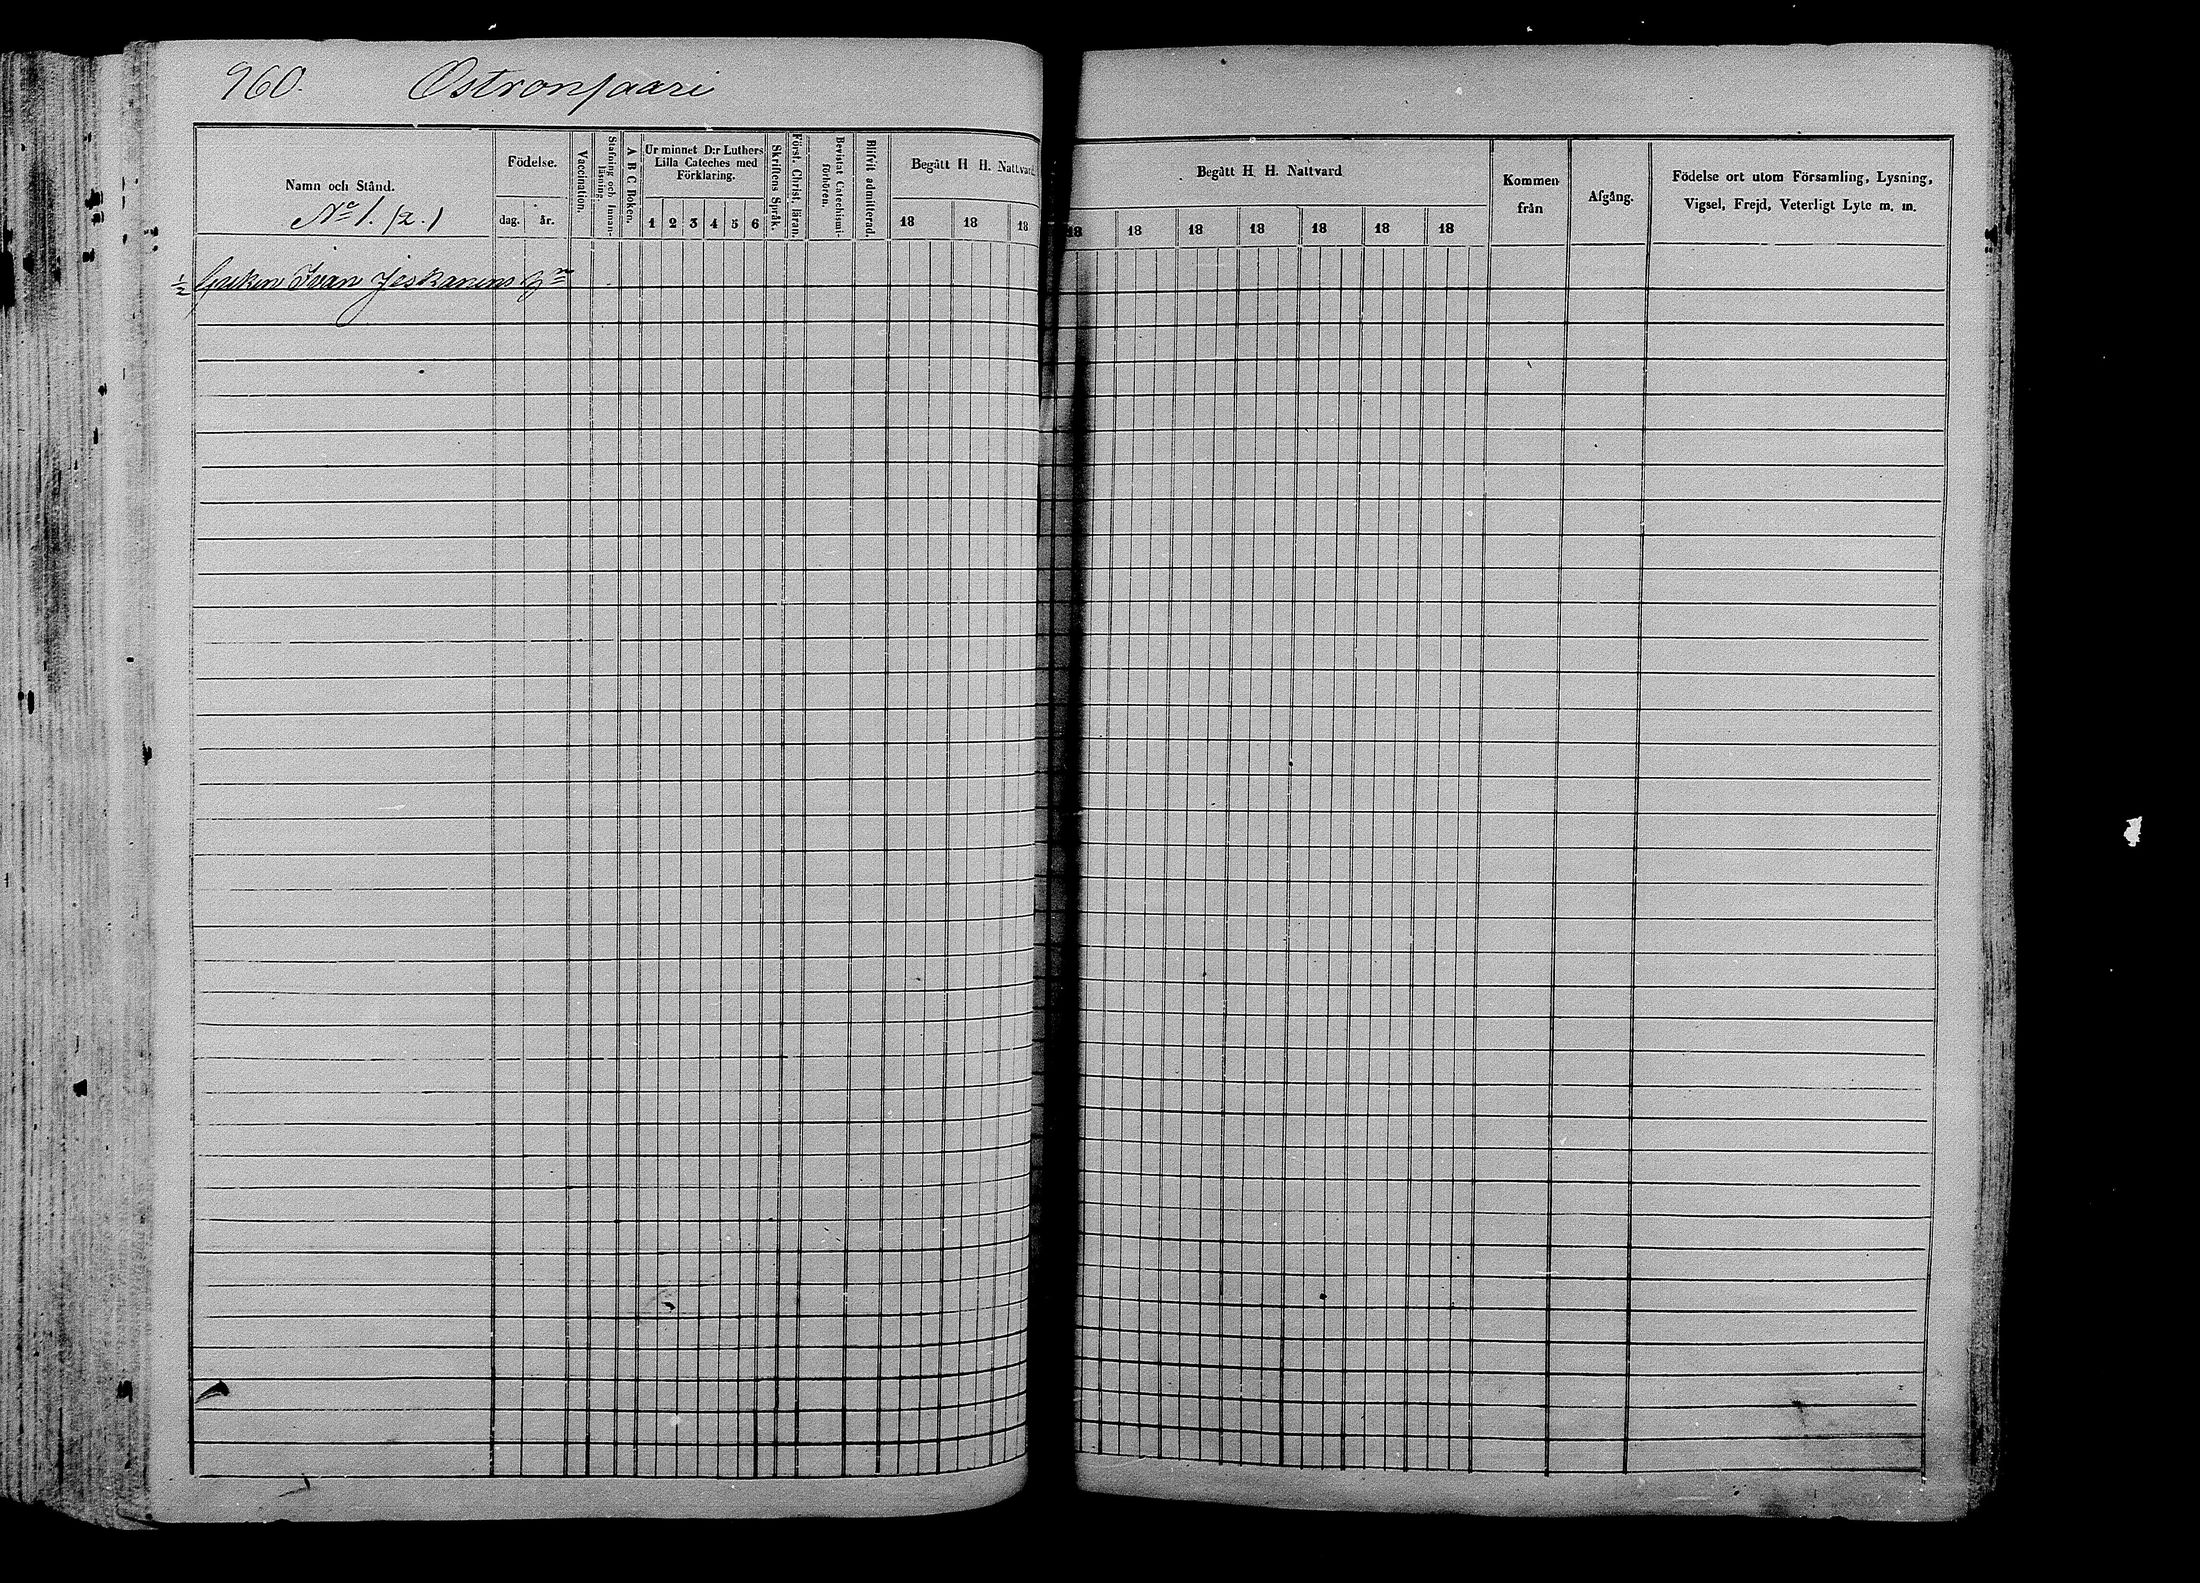 960. Ostronsaari
Namn och Stånd.
No 1. (2.)
Födelse.
dag. år.
Vaccination.
Stafning och Innanläsning.
A B C Boken.
Ur minnet D:r Luthers Lilla Cateches med Förklaring.
1 2 3 4 5 6
Skriftens Språk.
Först. Christ. läran.
Bevistat Catechismiförhören.
Blifvit admitterad.
Begått H H. Nattvard
18 18 18
Begått H H. Nattvard
18 18 18 18 18 18 18
Kommen från
Afgång.
Födelse ort utom Församling, Lysning, Vigsel, Frejd, Veterligt Lyte m. m.
1/2 Greken Ivan Jeskanens